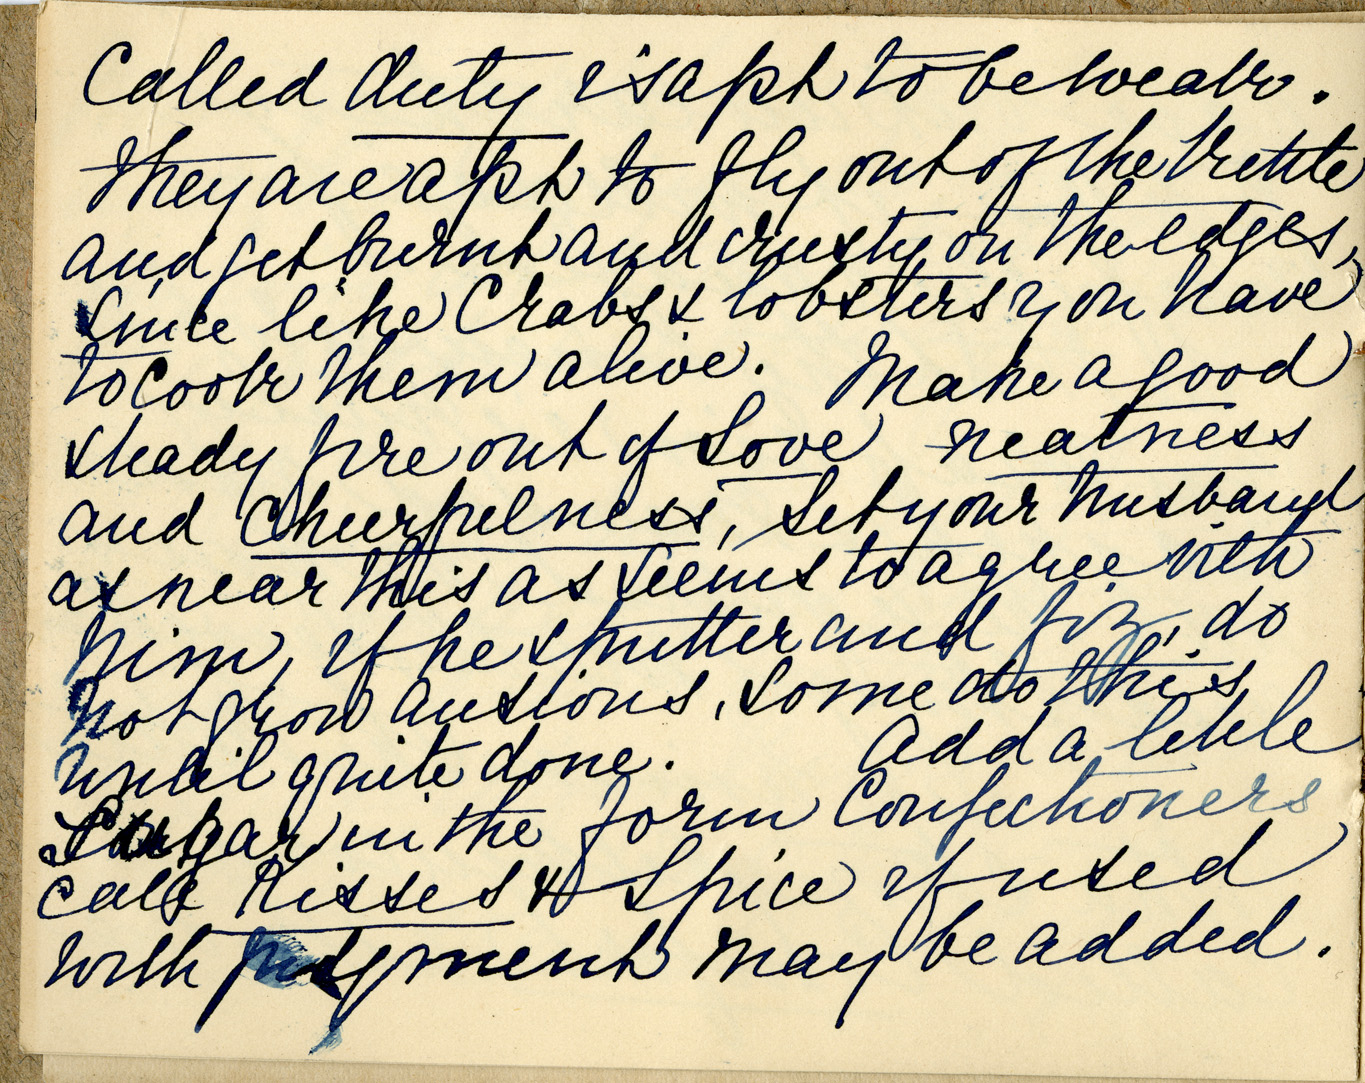 Called duty is apt to be weak.
They are apt to fly out of the kettle
and get burnt and crusty on the edges,
Since like Crabs & lobsters you have
to cook them alive. Make a good
steady fire out of Love neatness
and Cheerfulness, Set your husband
as near this as seems to agree with
him, if he sputter and fiz, do
not grow anxious, some do this
until quite done. Add a little
Sugar in the form Confectioners
call Kisses & Spice if used
with judgment may be added.